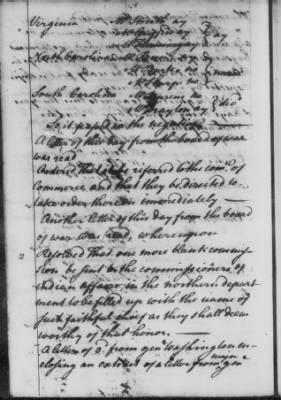 Virginia Mr Smith ay
Mr Griffin ay } ay
North Carolina Mr Penn ay
Mr Burke no } divided
Mr Sharpe no
South Carolina Mr Laurens no
Mr Drayton ay } divd
So it passed in the negative
A letter of this day from the board of war
was read
Ordered that it be referred to the come. of
Commerce and that they be directed to
take order therein immediately
Another letter of this day from the board
of war was read, whereupon
Resolved that one more blank commis
sion be sent to the commissioners of
indian affairs in the northern depart
ment to be filled up with the name of
such faithful chief as they shall deem
worthy of that honor.
A letter of 2d from genl Washington en
closing an extract of a letter from genl